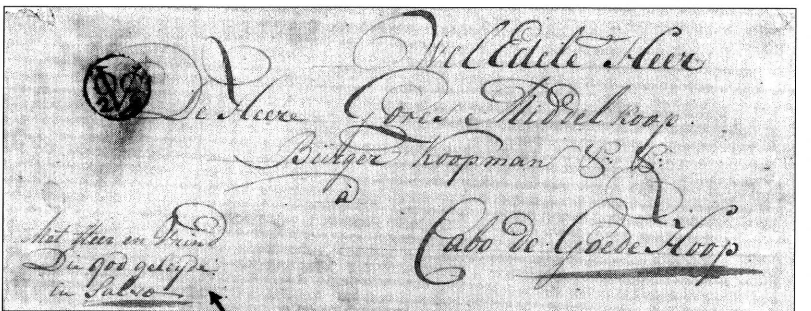 Wel Edele Heer
De Heere Gores Middelkoop
Burger Koopman &: &:
à
Cabo de Goede Hoop
Met Heer en Vrind
Die god geleyde
en Salvo